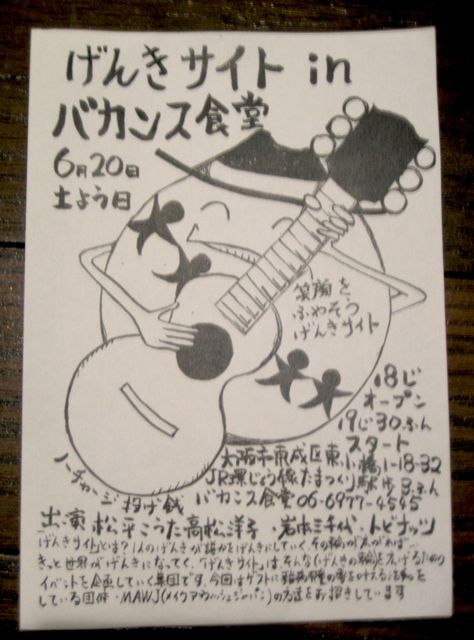 げんきサイト in
バカンス食堂
6月20日
土よう日
笑顔を
ふやそう
げんきサイト
18じ
オープン
19じ30ふん
スタート
大阪市東成区東小橋1-18-32
JR環じょう線たまつくり駅歩3ふん
バカンス食堂 06-6977-4545
ノーチャージ 投げ銭
出演 松平こうた・高松洋子・岩本ミチ代・トビナッツ
げんきサイトとは?1人のげんきが誰かをげんきにしていく、その輪が広がれば…
きっと世界がげんきになってく、「げんきサイト」は、そんな(げんきの輪)を広げるための
イベントを企画していく集団です。今回はゲストに
している団体・MAWJ(メイクアウィッシュジャパン)の方達をお招きしています